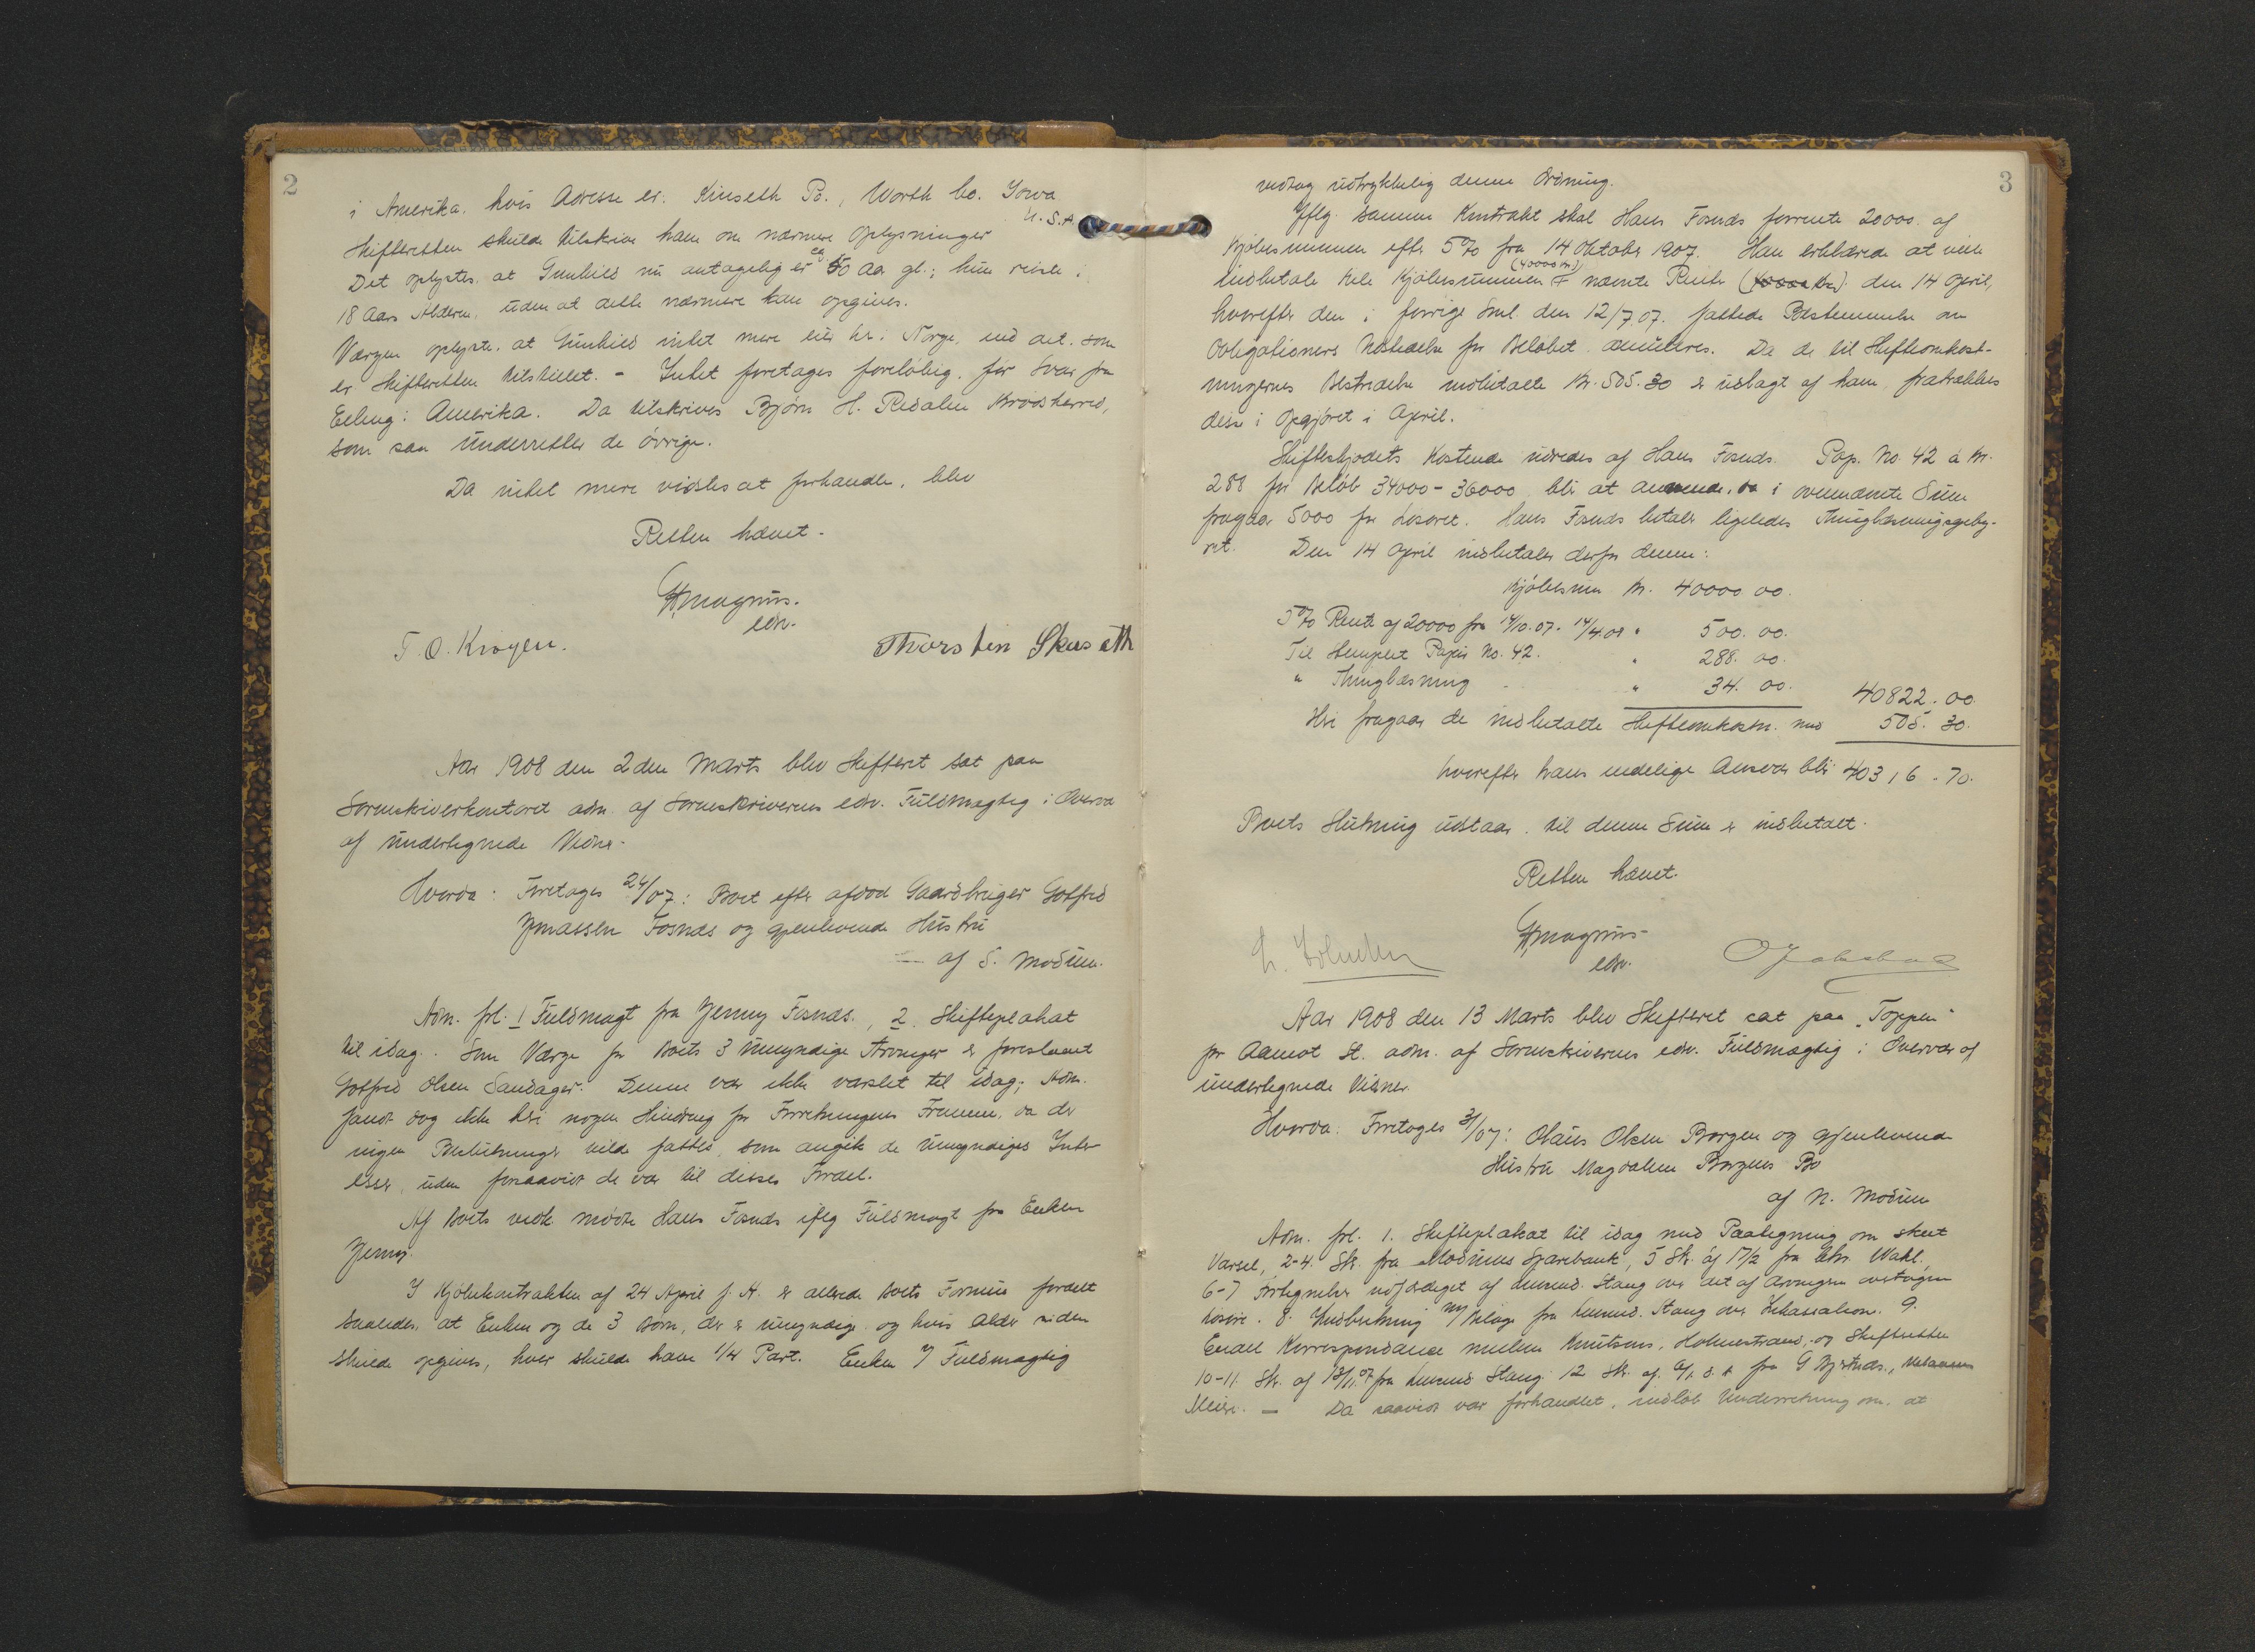 2
i Amerika. hvis Adresse er. Kinseth Po., Worth Co. Iowa
U.S.A
Skifteretten skulde tilskrive ham om nærmere Oplysninger
Det oplystes, at Gunhild nu antagelig er ca 50 Aar gl.; hun reiste i
18 Aars Alderen, uden at dette nærmere kan opgives.
Værgen oplyste, at Gunhild intet mere eier her i Norge, end det. som
er Skifteretten tilstillet. - Intet foretages foreløbig, før Svar fra
Erling i Amerika. Da tilskrives Bjørn H. Redalen Krødsherred,
som saa underretter de øvrige.
Da intet mere vidstes at forhandle, blev
Retten hævet.
H. Magnus.
edsv.
T. O. Kroyen.
Thorstin Skaseth
Aar 1908 den 2den Marts blev Skifteret sat paa
Sorenskriverkontoret adm. af Sorenskriverens edsv. Fuldmægtig i Overvær
af undertegnede Vidner.
Hvorda: Foretages 24/07: Boet efter afdød Gaardbruger Gotfred
Jonassen Fosnæs og gjenlevende Hustru
af S. Modum.
Adm. frl. 1 Fuldmagt fra Jenny Fosnæs., 2. Skifteplakat
til idag. Som Værge for Boets 3 umyndige Arvinger er foreslaaet
Gotfred Olsen Sandager. Denne var ikke varslet til idag; Adm.
fandt dog ikke heri nogen Hindring for Forretningens Fremme, da der
ingen Beslutninger vilde fattes, som angik de umyndiges Inter
esser, uden forsaavidt de var til disses Fordel.
Af Boets vedk. mødte Hans Fosnæs iflg Fuldmagt fra Enken
Jenny.
I Kjøbekontrakten af 24 April f. A. er allerede Boets Formue fordelt
saaledes, at Enken og de 3 Børn, der er umyndige og hvis Alder siden
skulde opgives, hver skulde have 1/4 Part. Enken v/ Fuldmægtig
3
vedtog udtrykkelig denne Ordning.
Iflg. samme Kontrakt skal Hans Fosnæs forrente 20000 af
Kjøbesummen efter 5% fra 14 Oktober 1907. Han erklærede at ville
(40000 kr.)
indbetale hele Kjøbesummen + nævnte Rente (40000 kr.) den 14 April,
hvorefter den i forrige Sml. den 12/7.07. fattede Bestemmelse om
Obligationers Udstedelse for Beløbet annuleres. Da de til Skifteomkost-
ningernes Bestridelse indbetalte Kr. 505.30 er udlagt af ham, fratrækkes
disse i Opgjøret i April.
Skifteskjødets Kostende udredes af Hans Fosnæs. Pap. No. 42 à Kr.
288 for Beløb 34000-36000, blir at anvende, da i ovennævnte Sum
fragaar 5000 for Løsøret. Hans Fosnæs betaler ligeledes Thinglæsningsgeby-
ret. Den 14 April indbetaler derfor denne:
Kjøbesum Kr. 40000.00.
5% Rente af 20000 fra 14/10.07-14/4.08 " 500.00.
Til Stemplet Papir No. 42. " 288.00.
" Thinglæsning " 34.00. 40822.00.
Heri fragaar de indbetalte Skifteomkostn. med 505.30.
hvorefter hans endelige Ansvar blir 40316.70.
Boets Slutning udstaar, til denne Sum er indbetalt.
Retten hævet.
H. Magnus
edsv.
Aar 1908 den 13 Marts blev Skifteret sat paa "Toppen"
pr Aamot St. adm. af Sorenskriverens edsv. Fuldmægtig i Overvær af
undertegnede Vidner.
Hvorda. Foretages 3/07: Olaus Olsen Borgen og gjenlevende
Hustru Magdalene Borgens Bo
af N. Modum
Adm. frl. 1. Skifteplakat til idag med Paategning om skeet
Varsel, 2-4. Skr. fra Modums Sparebank, 5 Skr. af 17/2 fra Chr. Wahl.,
6-7 Fortegnelse udfærdiget af Lensmd. Stang over det af Arvingen overtagne
Løsøre. 8. Indberetning m/ Bilage fra Lensmd. Stang over Inkassation. 9.
Endel Korrespondance mellem Knutsens, Holmestrand, og Skifteretten
10-11 Skr. af 13/11.07 fra Lensmd Stang 12 Skr. af
Meier. - Da saavidt var forhandlet, indløb Underretning om, at